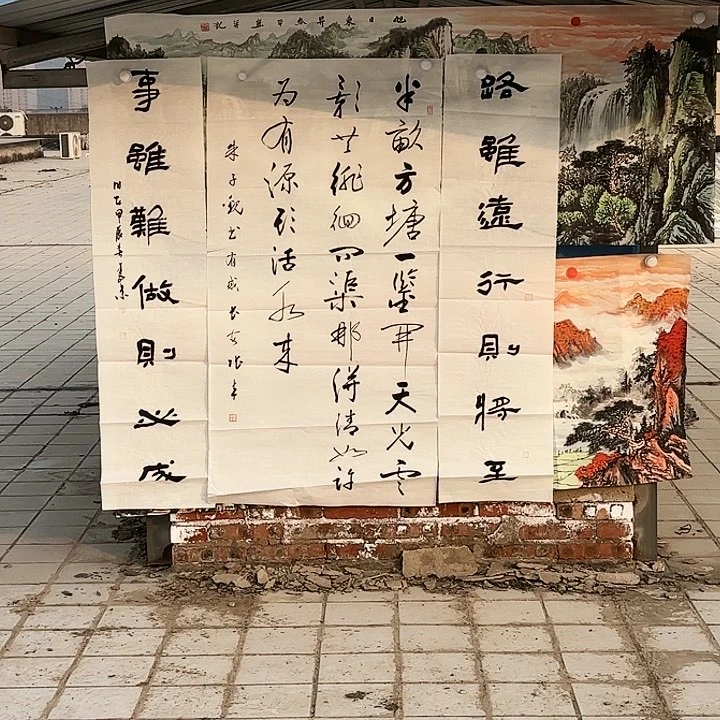 旭日東昇
路雖遠行則將至
半畝方塘一鑒開天光雲
影共徘徊問渠那得清如許
為有源頭活水來
朱子觀書有感
事雖難做則必成
甲辰春